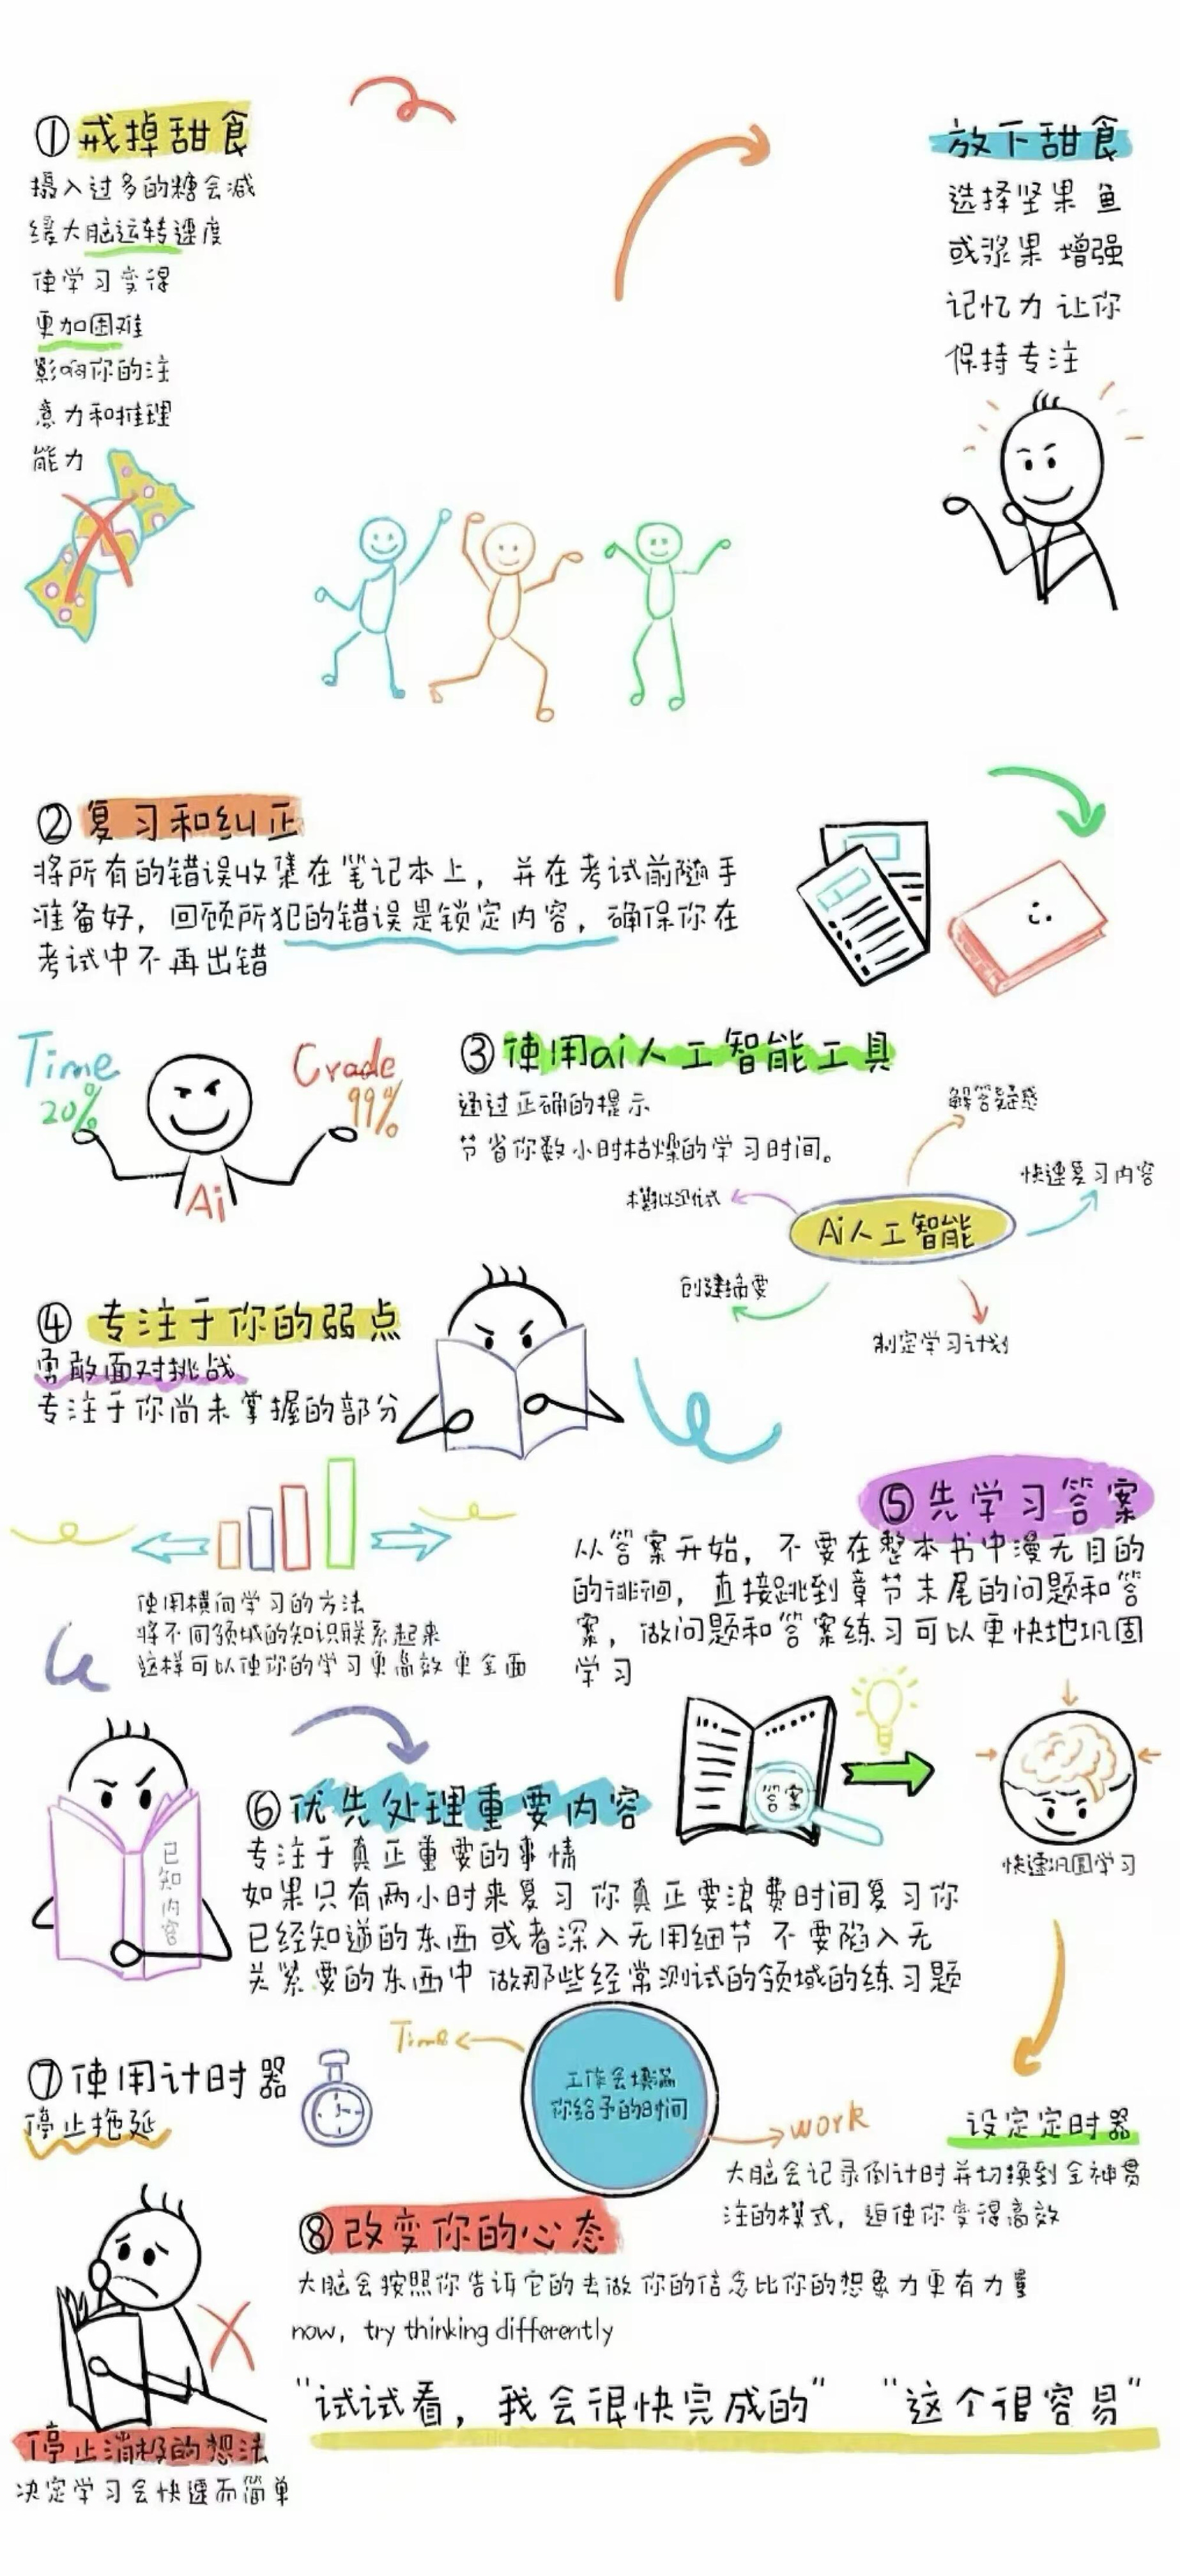 ①戒掉甜食
摄入过多的糖会减
缓大脑运转速度
使学习变得
更加困难
影响你的注
意力和推理
能力
放下甜食
选择坚果 鱼
或浆果 增强
记忆力 让你
保持专注
②复习和纠正
将所有的错误收集在笔记本上，并在考试前随手
准备好，回顾所犯的错误是锁定内容，确保你在
考试中不再出错
Time
20%
Crade
99%
Ai
③使用ai人工智能工具
通过正确的提示
节省你数小时枯燥的学习时间。
解答疑惑
快速复习内容
模拟测试
Ai人工智能
创建摘要
制定学习计划
④ 专注于你的弱点
勇敢面对挑战
专注于你尚未掌握的部分
使用横向学习的方法
将不同领域的知识联系起来
这样可以使你的学习更高效 更全面
⑤先学习答案
从答案开始，不要在整本书中漫无目的
的徘徊，直接跳到章节末尾的问题和答
案，做问题和答案练习可以更快地巩固
学习
答案
快速巩固学习
已知内容
⑥优先处理重要内容
专注于真正重要的事情
如果只有两小时来复习 你真正要浪费时间复习你
已经知道的东西 或者深入无用细节 不要陷入无
关紧要的东西中 做那些经常测试的领域的练习题
⑦使用计时器
停止拖延
Time
工作会填满
你给予的时间
work
设定定时器
大脑会记录倒计时并切换到全神贯
注的模式，迫使你变得高效
⑧改变你的心态
大脑会按照你告诉它的去做 你的信念比你的想象力更有力量
now, try thinking differently
"试试看，我会很快完成的" "这个很容易"
停止消极的想法
决定学习会快速而简单